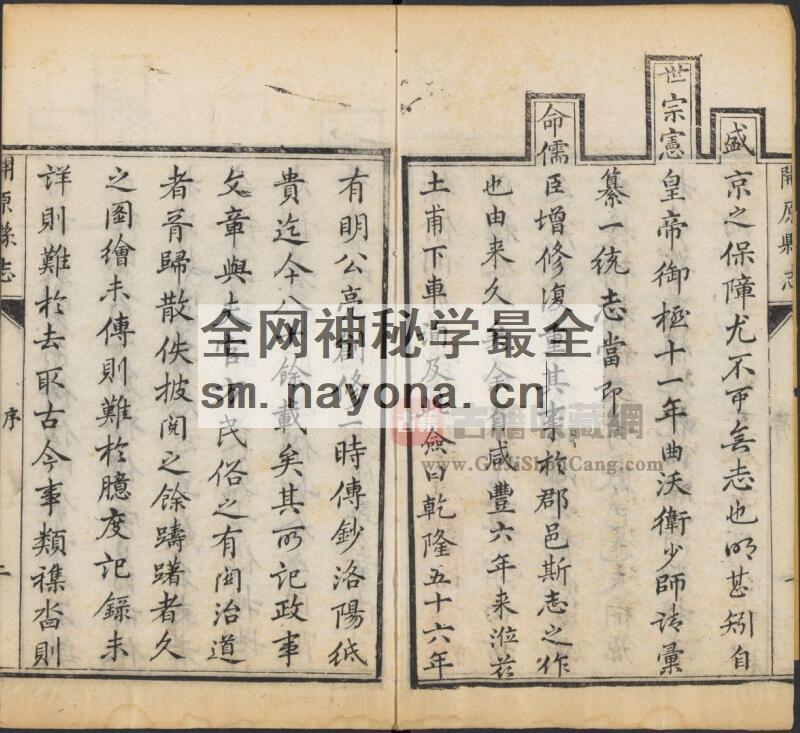 開原縣志
盛京之保障尤不可無志也明甚矧自
世宗憲皇帝御極十一年曲沃衛少師請彙
纂一統志當即
命儒臣增修復重其事於郡邑斯志之作
也由來久咸豐六年來涖茲
土甫下車及僉曰乾隆五十六年
有明公亮修一時傳鈔洛陽紙
貴迄今八餘載矣其所記政事
文章與夫民俗之有関治道
者胥歸散佚披閱之餘躊躇者久
之圖繪未傳則難於臆度記錄未
詳則難於去取古今事類襍沓則
開原縣志
序
二
全网神秘学最全
sm.nayona.cn
古籍收藏網
www.GuJiShouCang.com